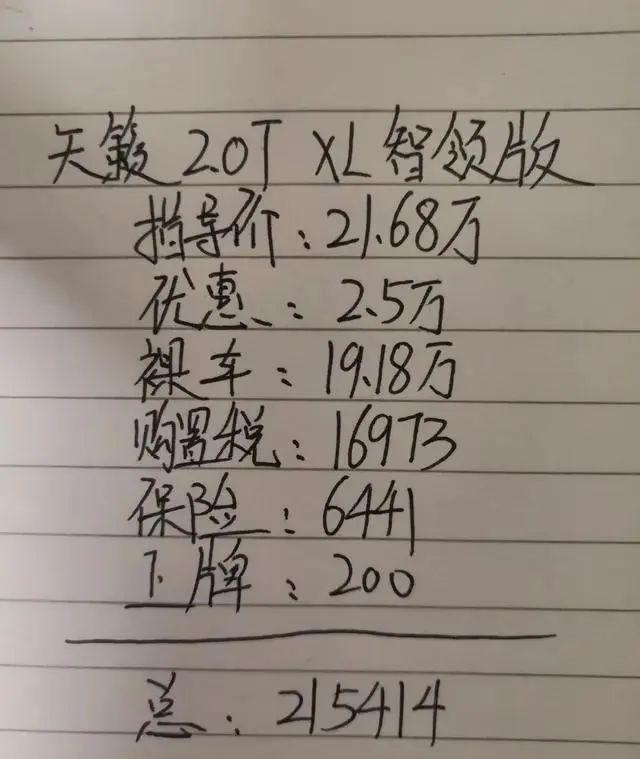 天籁 2.0T XL智领版
指导价：21.68万
优惠：2.5万
裸车：19.18万
购置税：16973
保险：6441
上牌：200
总：215414